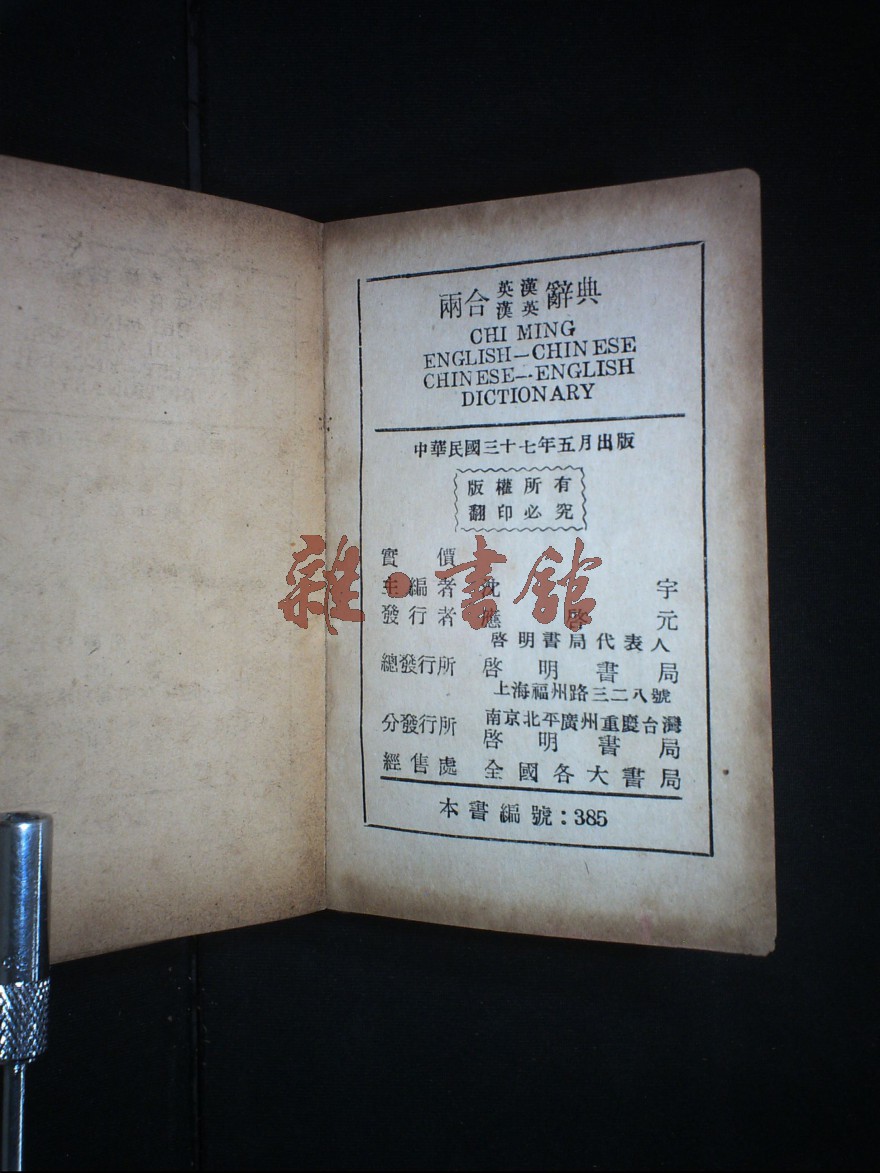 兩合英漢漢英辭典
CHI MING
ENGLISH—CHINESE
CHINESE—ENGLISH
DICTIONARY
中華民國三十七年五月出版
版權所有
翻印必究
實價
主編者 沈宇
發行者 應啓元
啓明書局代表人
總發行所 啓明書局
上海福州路三二八號
分發行所 南京北平廣州重慶台灣
啓明書局
經售處 全國各大書局
本書編號：385
雜·書館